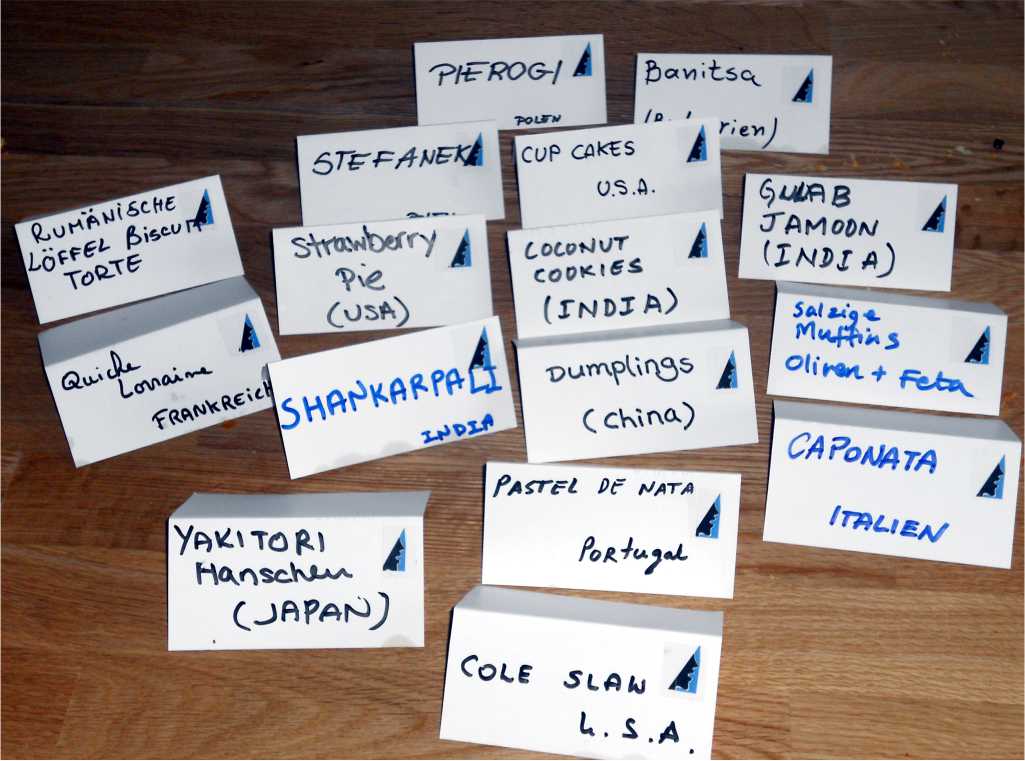 PIEROGI
POLEN
Banitsa
STEFANEK
CUP CAKES
U.S.A.
RUMÄNISCHE
LÖFFEL BISCUIT
TORTE
Strawberry
Pie
(USA)
COCONUT
COOKIES
(INDIA)
GULAB
JAMOON
(INDIA)
Quiche
Lorraine
FRANKREICH
SHANKARPALI
INDIA
Dumplings
(China)
Salzige
Muffins
Oliven + Feta
CAPONATA
ITALIEN
PASTEL DE NATA
Portugal
YAKITORI
Hänschen
(JAPAN)
COLE SLAW
U.S.A.